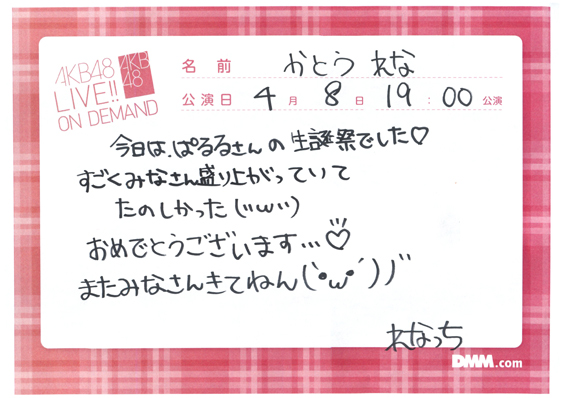 AKB48
LIVE!!
ON DEMAND
AKB
48
名前 かとう れな
公演日 4月8日 19:00公演
今日は、ぱるるさんの生誕祭でした♡
すごくみなさん盛り上がっていて
たのしかった(´ω`)
おめでとうございます…♡
またみなさんきてねん(`・ω・´)ﾉ゛
れなっち
DMM.com